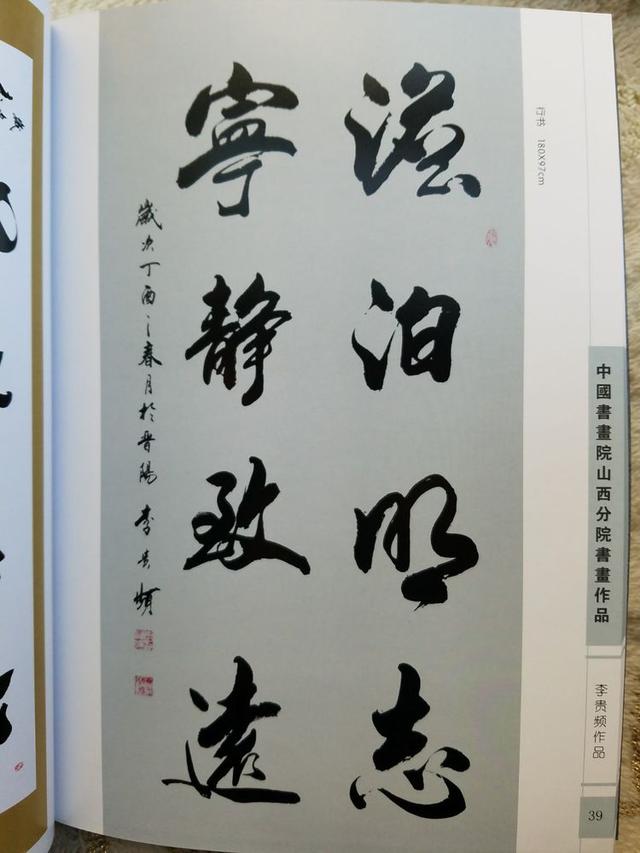 行书 180X97cm
澹泊明志
寧靜致遠
歲次丁酉之春月於晉陽 李貴頻
中國書畫院山西分院書畫作品
李贵频作品
39